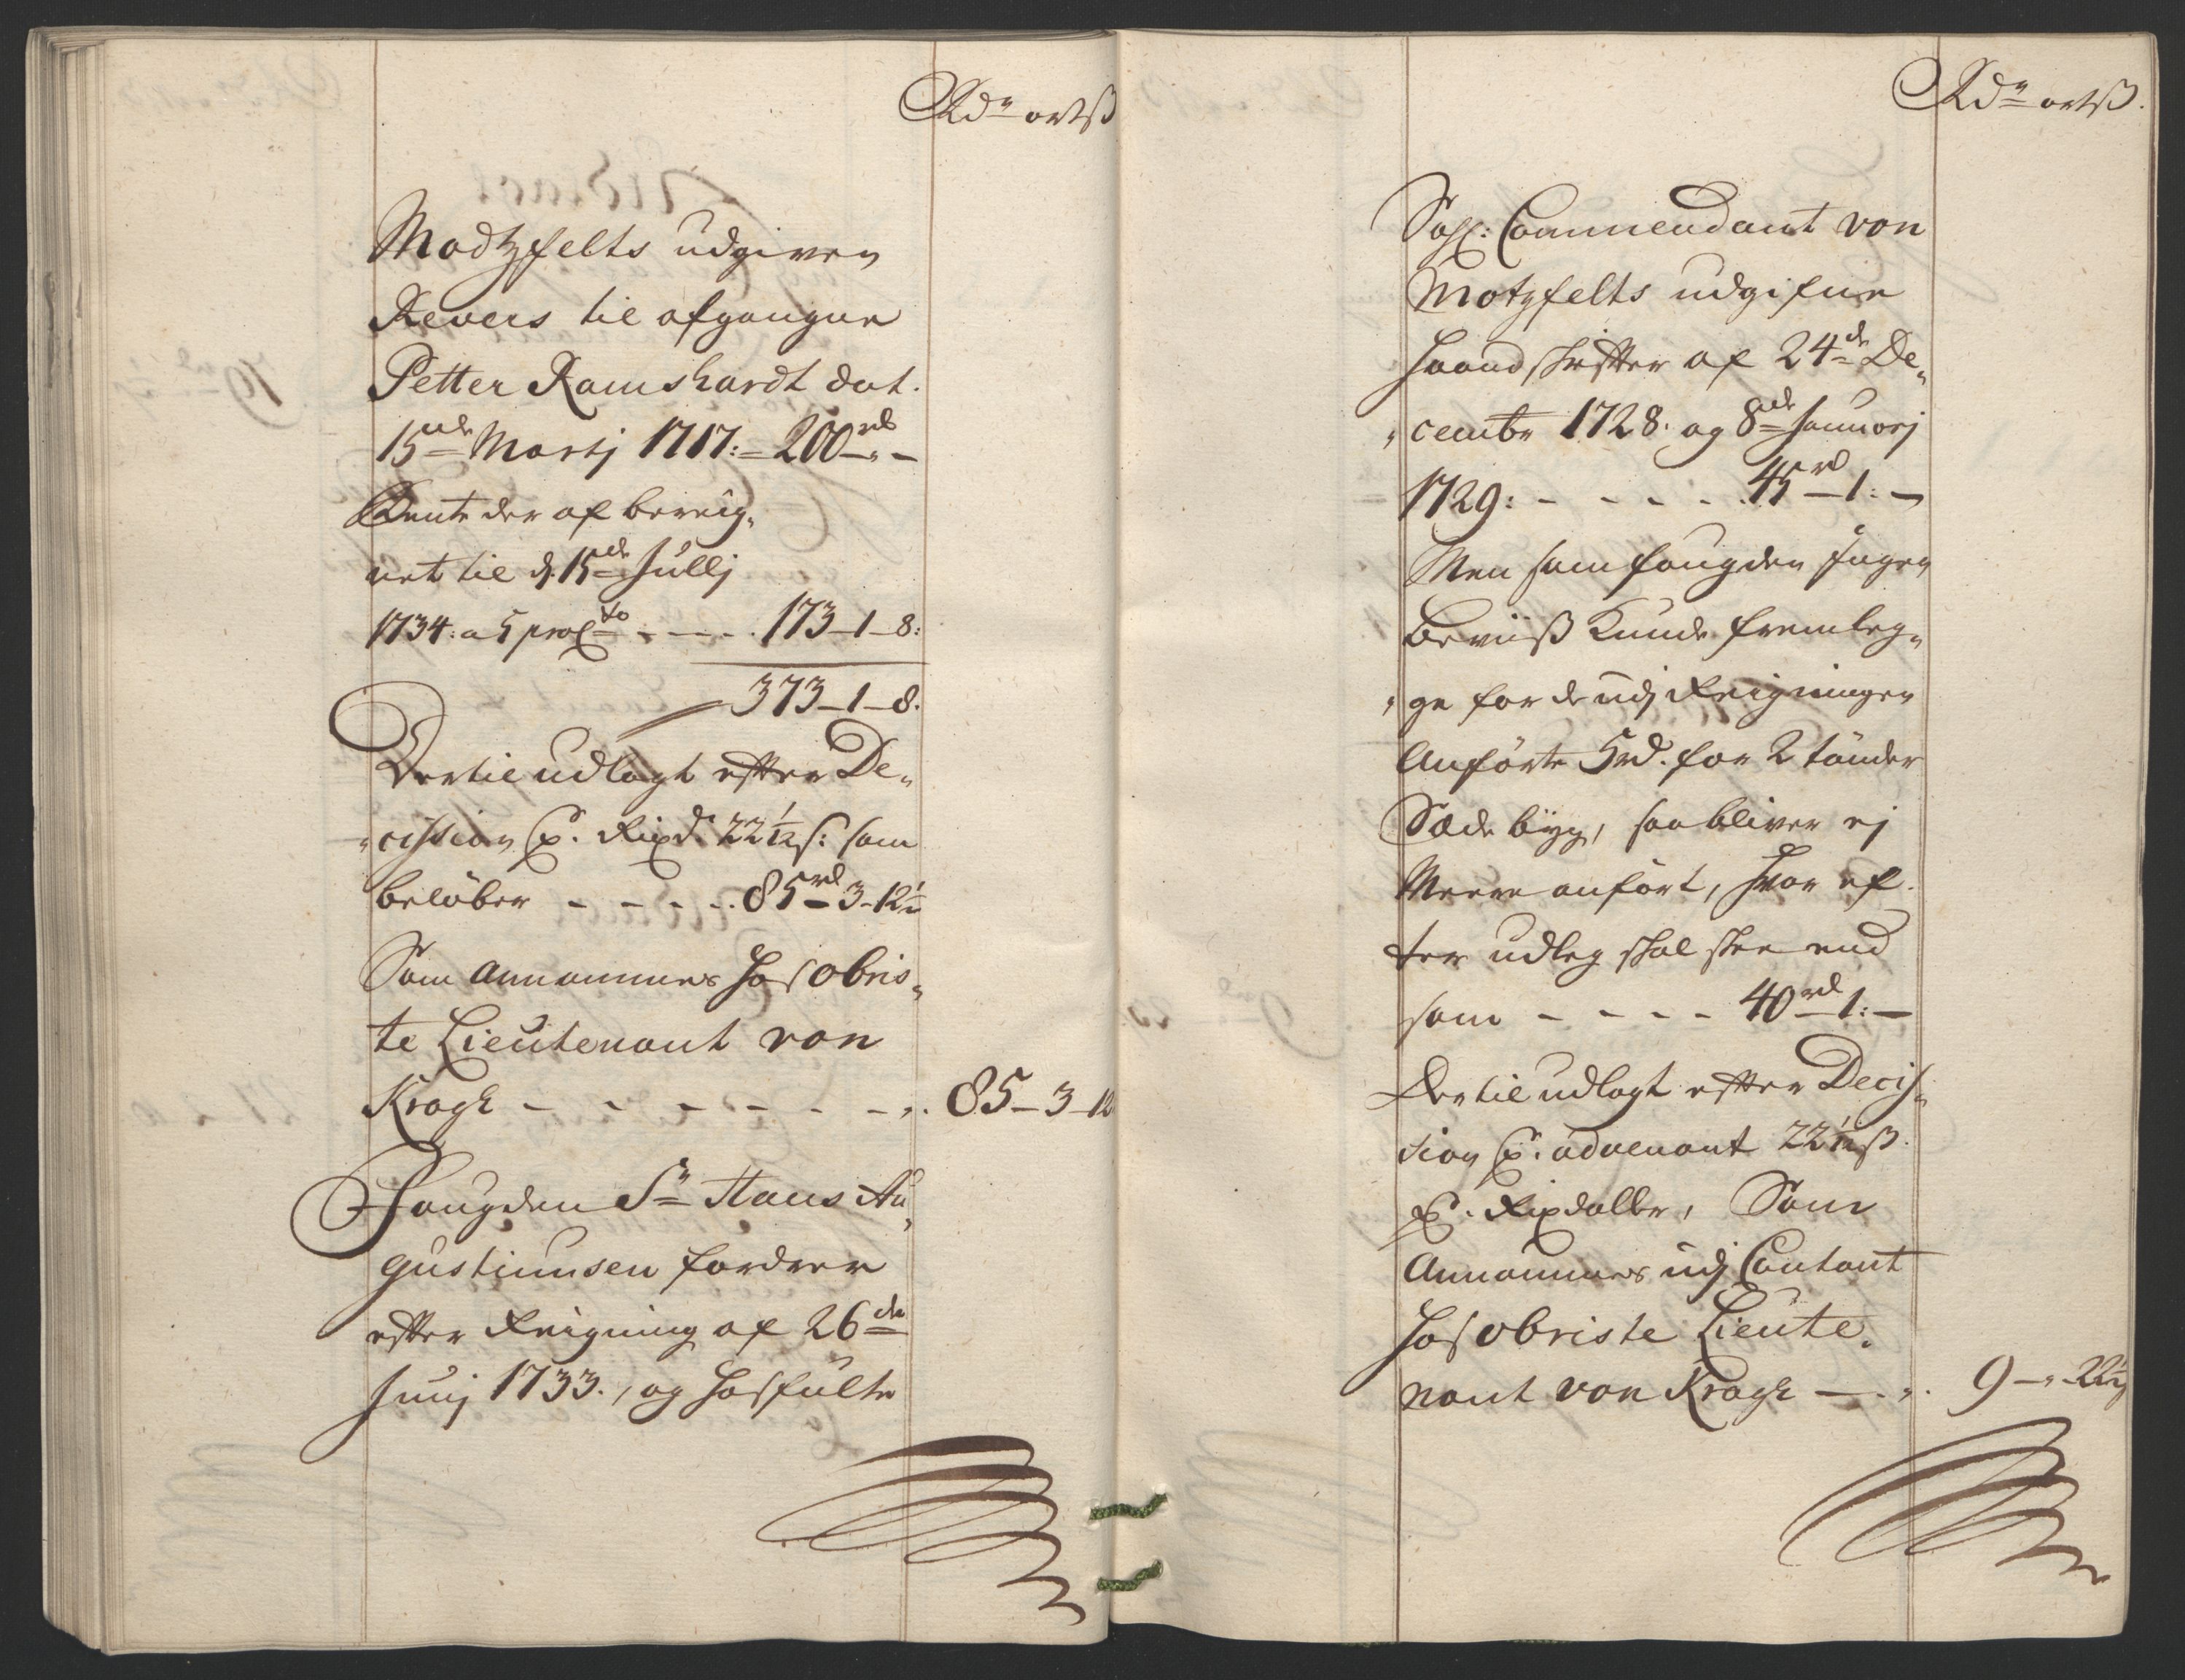 Rdr ortß
Modtzfelts udgiven
Revers til afgangne
Petter Ramshardt dat.
15de Martj 1717: 200rd -
Rente der af bereig„
net til d. 15de Jullj
1734: a 5 proCto - - - 173-1-8:
373-1-8.
Dertil udlagt effter De„
„cission P. Rixd. 22 1/12 s: som
beløber - - - - 85rd-3-12 1/2
Som annammes hos obris„
te Lieutenant von
Kragh - - - - - - 85-3-12
Fougden Sr Hans Au„
gustinusen fordrer
effter Reigning af 26de
Junj 1733., og hosfulte
Rdr ortß.
Sahl: Commendant von
Motzfelts udgifne
Haandskriffter af 24de De„
„cembr 1728. og 8de Januarj
1729: - - - - 45rd-1:-
Men som fougden Ingen
Beviiß kunde fremleg„
„ge for de udj Reigningen
Anførte 5rd. for 2 tønder
Sæde byg, saa bliver ej
Meere anført, hvor ef„
ter udleg skal skee end
som - - - - 40rd-1:-
Dertil udlagt effter Decis„
sion P. advenant 22 1/12 ß.
P. Rixdaller, Som
Annammes udj Contant
hos obriste Lieute„
nant von Kragh - - 9-"-22 1/2